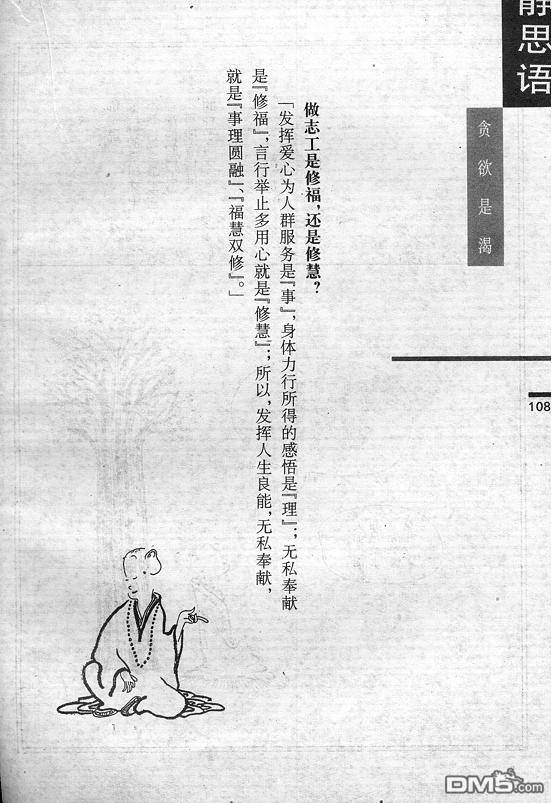 静思语
贪欲是渴
108
做志工是修福，还是修慧？
「发挥爱心为人群服务是『事』，身体力行所得的感悟是『理』；无私奉献
是『修福』，言行举止多用心就是『修慧』；所以，发挥人生良能，无私奉献，
就是『事理圆融』、『福慧双修』。」
DM5.com